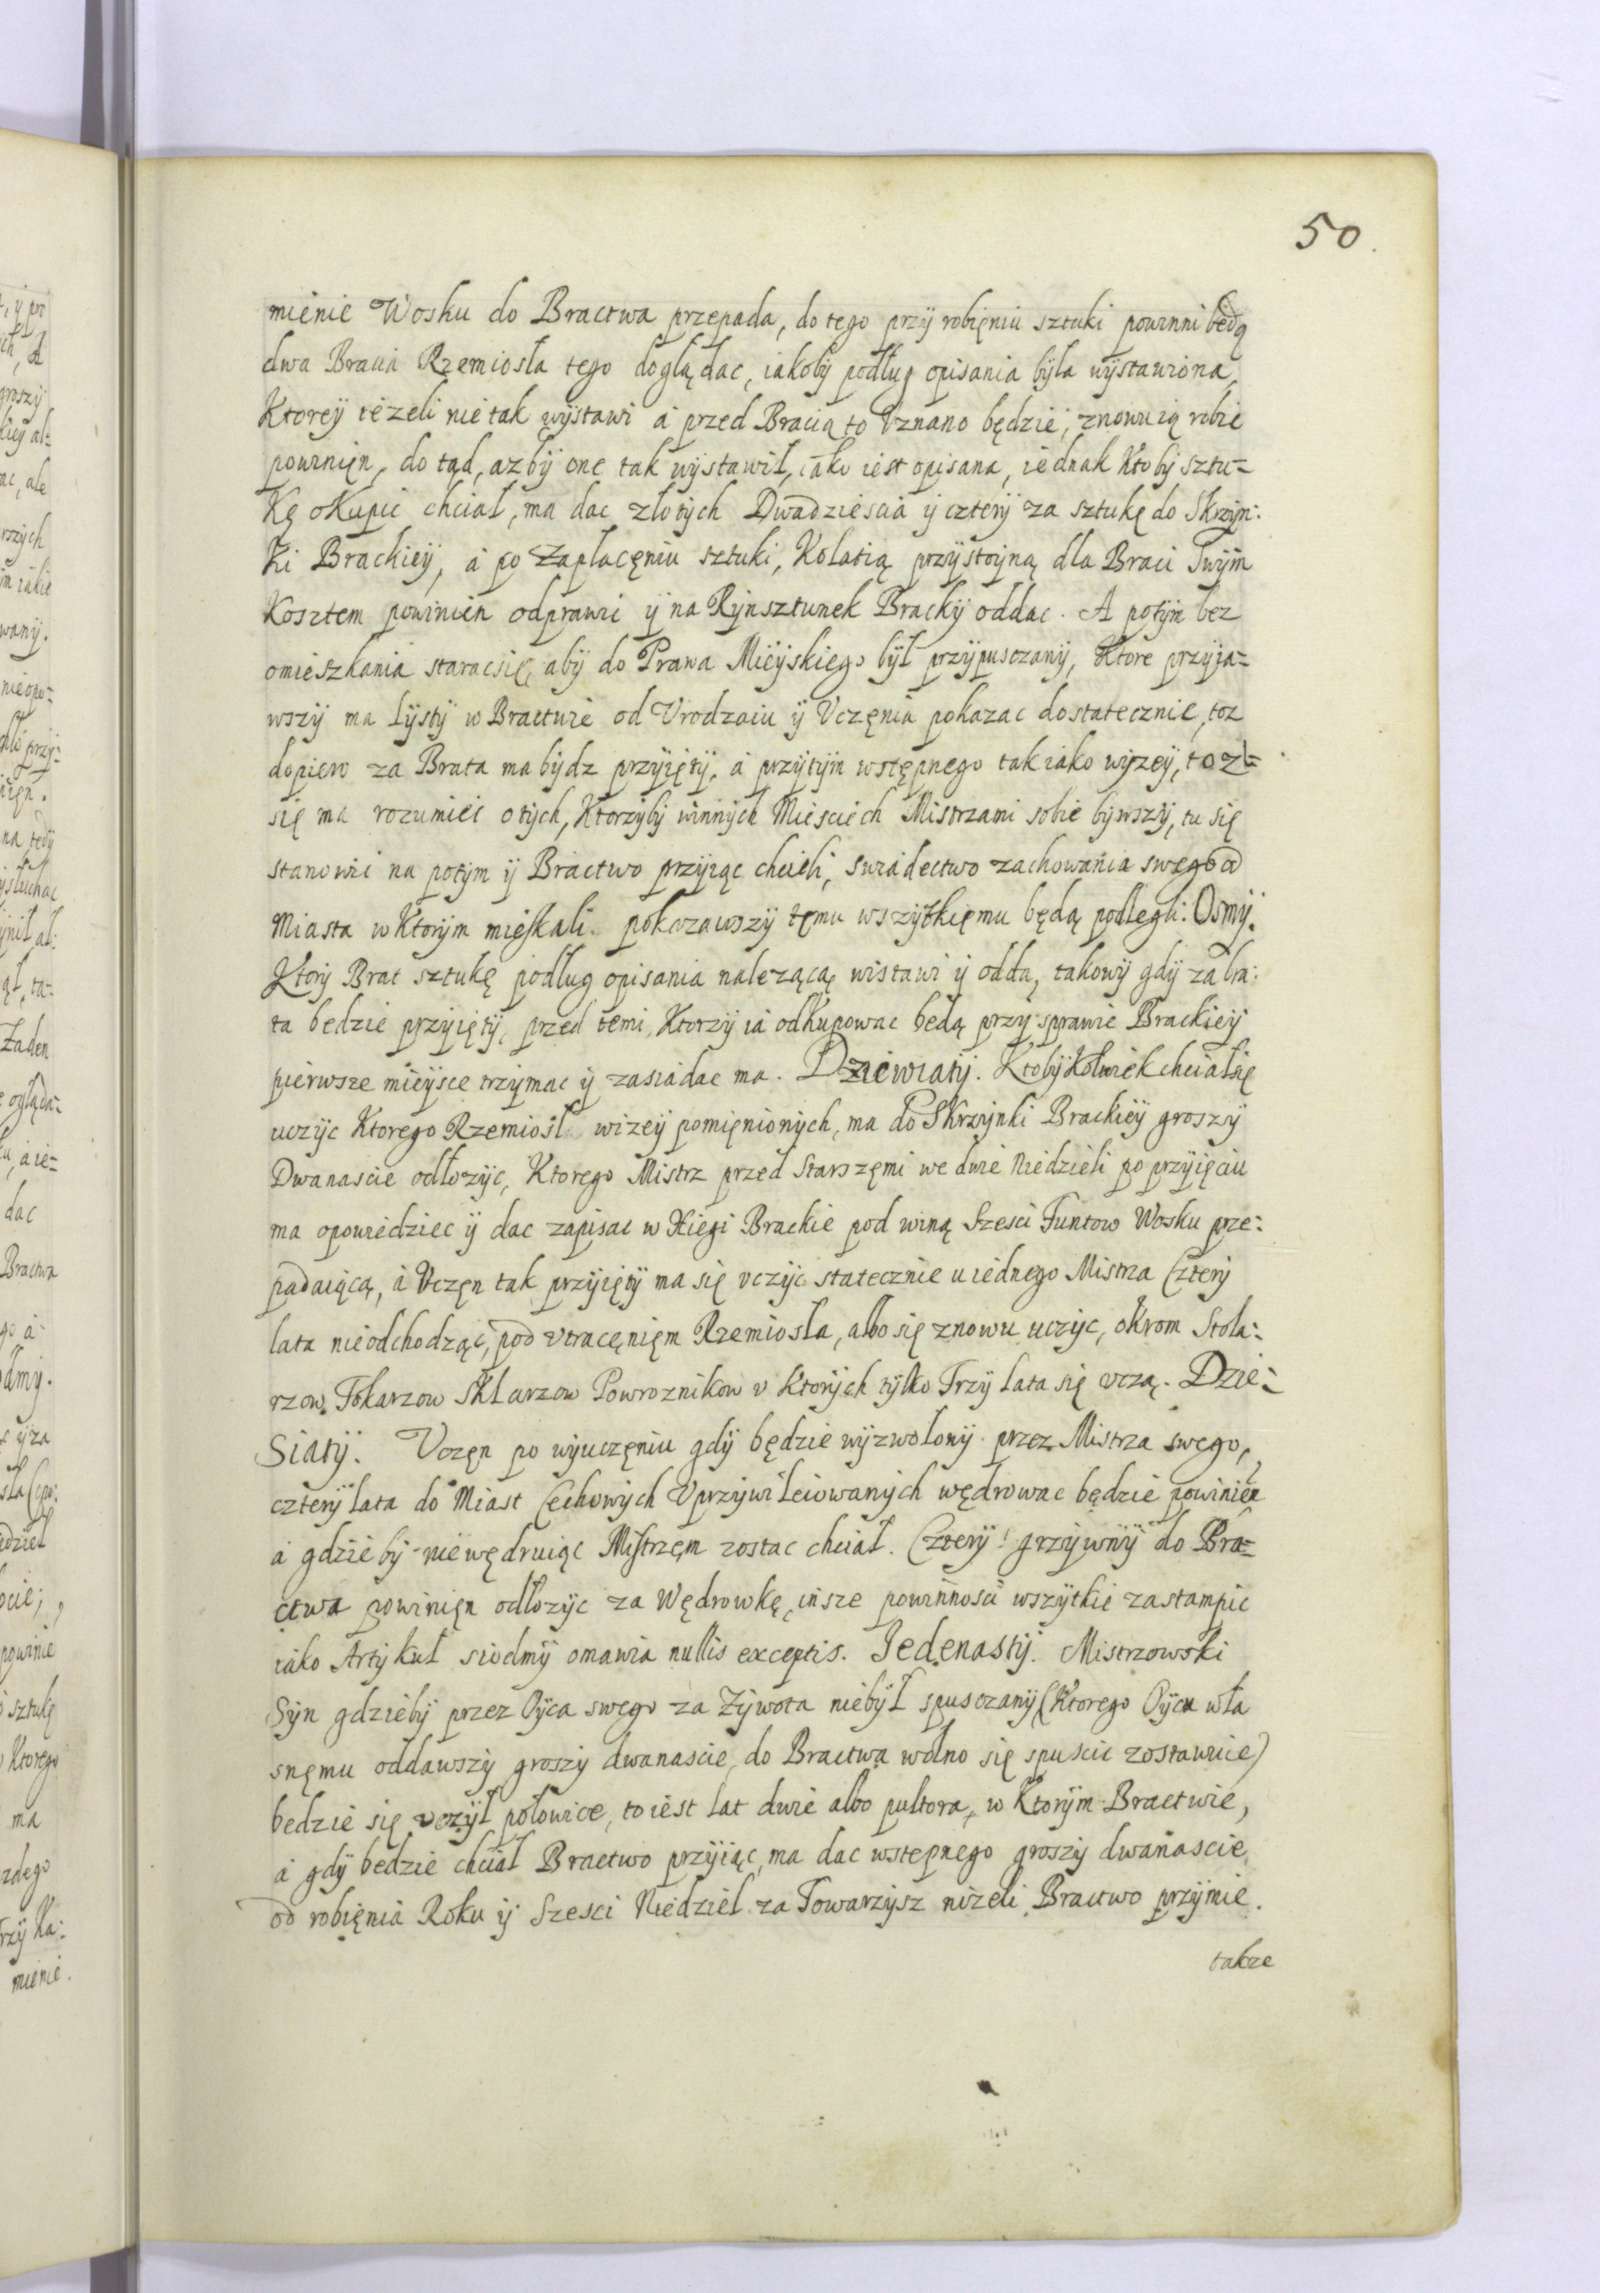 50.
mienie Wosku do Bractwa przepada, do tego przÿ robięniu sztuki powinni będą
dwa Bracia Rzemiosła tego doglądac, iakobÿ podług opisania była wÿstawiona,
Ktoreÿ ieżeli nie tak wÿstawi á przed Bracią to Vznano będzie, znowu ią robic
powinięn, do tąd, azbÿ one tak wÿstawił, iako iest opisana, iednak Ktobÿ sztu-
Kę oKupic chciał, ma dac złotÿch Dwadziescia ÿ czterÿ za sztukę do Skrzÿn:
Ki Brackieÿ, á po zapłacęniu sztuki, Kolatią przÿstoÿną dla Braci Swÿm
Kosztem powinien odprawic ÿ na Rÿnsztunek Brackÿ oddac. A potÿm bez
omieszkania staracsię, abÿ do Prawa Mieÿskiego bÿł przÿpusczanÿ, Ktore przÿja-
wszÿ ma Lÿstÿ w Bractwie od Vrodzaiu ÿ Vczęnia pokazac dostatecznie, toz
dopiero za Brata ma bÿdz przÿiętÿ, á przÿtÿm wstępnego tak iako wÿzeÿ, toż-
się ma rozumiei otÿch, Ktorzÿbÿ winnÿch Miesciech Mistrzami sobie bÿwszÿ, tu się
stanowic na potÿm ÿ Bractwo przÿiąc chcieli, swiadectwo zachowania swego od
Miasta w Ktorÿm mieſkali. pokazawszÿ tęmu wszÿtkięmu będą podlegli: Osmÿ.
Ktorÿ Brat sztukę podług opisania nalezącą wistawi ÿ odda, takowÿ gdÿ za bra:
ta bedzie przÿiętÿ, przed temi, Ktorzÿ ia odkupowac będą przÿ sprawie Brackieÿ
pierwsze mieÿsce trzÿmac ÿ zasiadac ma. Dziewiatÿ. KtobÿKolwiek chciałsię
uczÿc Ktorego Rzemiosł wizeÿ pomięnionÿch, ma do Skrzÿnki Brackieÿ groszÿ
Dwanascie odłozÿc, Ktorego Mistrz przed Starszęmi we dwie Niedzieli po przÿięciu
ma opowiedziec ÿ dac zapisac w Xiegi Brackie pod winą Szesci Funtow Wosku prze:
padaiącą, á Vczęn tak przÿiętÿ ma się vczÿc statecznie u iednego Mistrza Czterÿ
lata nieodchodząc, pod vtracęnięm Rzemiosła, albo się znowu uczÿc, oKrom Stola:
rzow, Tokarzow SKLarzow Powroznikow v Ktorÿch tÿlko Trzÿ lata się vczą. Dzie-
Siatÿ. Vczęn po wÿuczęniu gdÿ będzie wÿzwolonÿ przez Mistrza swego,
czterÿ lata do Miast Cechowÿch Vprzÿwileiowanÿch wędrowac będzie powinięn
á gdzie bÿ niewędruiąc Miſtrzęm zostac chciał. Czterÿ grzÿwnÿ do Bra-
ctwa powinięn odłozÿc za Wędrowkę, insze powinnosci wszÿtkie zastampic
iako Artÿkuł siodmÿ omawia nullis exceptis. Jedenastÿ. Mistrzowski
Sÿn gdziebÿ przez Oÿca swego za Zÿwota niebÿł spusczanÿ (Ktorego Oÿcu wła
snęmu oddawszÿ groszÿ dwanascie, do Bractwa wolno się spuscic zostawuie)
bedzie się vczÿł połowice, to iest lat dwie albo pułtora, w Ktorÿm Bractwie,
á gdÿ bedzie chciał Bractwo przÿiąc, ma dac wstepnego groszÿ dwanascie,
od robięnia Roku ÿ Szesci Niedziel za Towarzÿsz nizeli Bractwo przÿmie.
takze